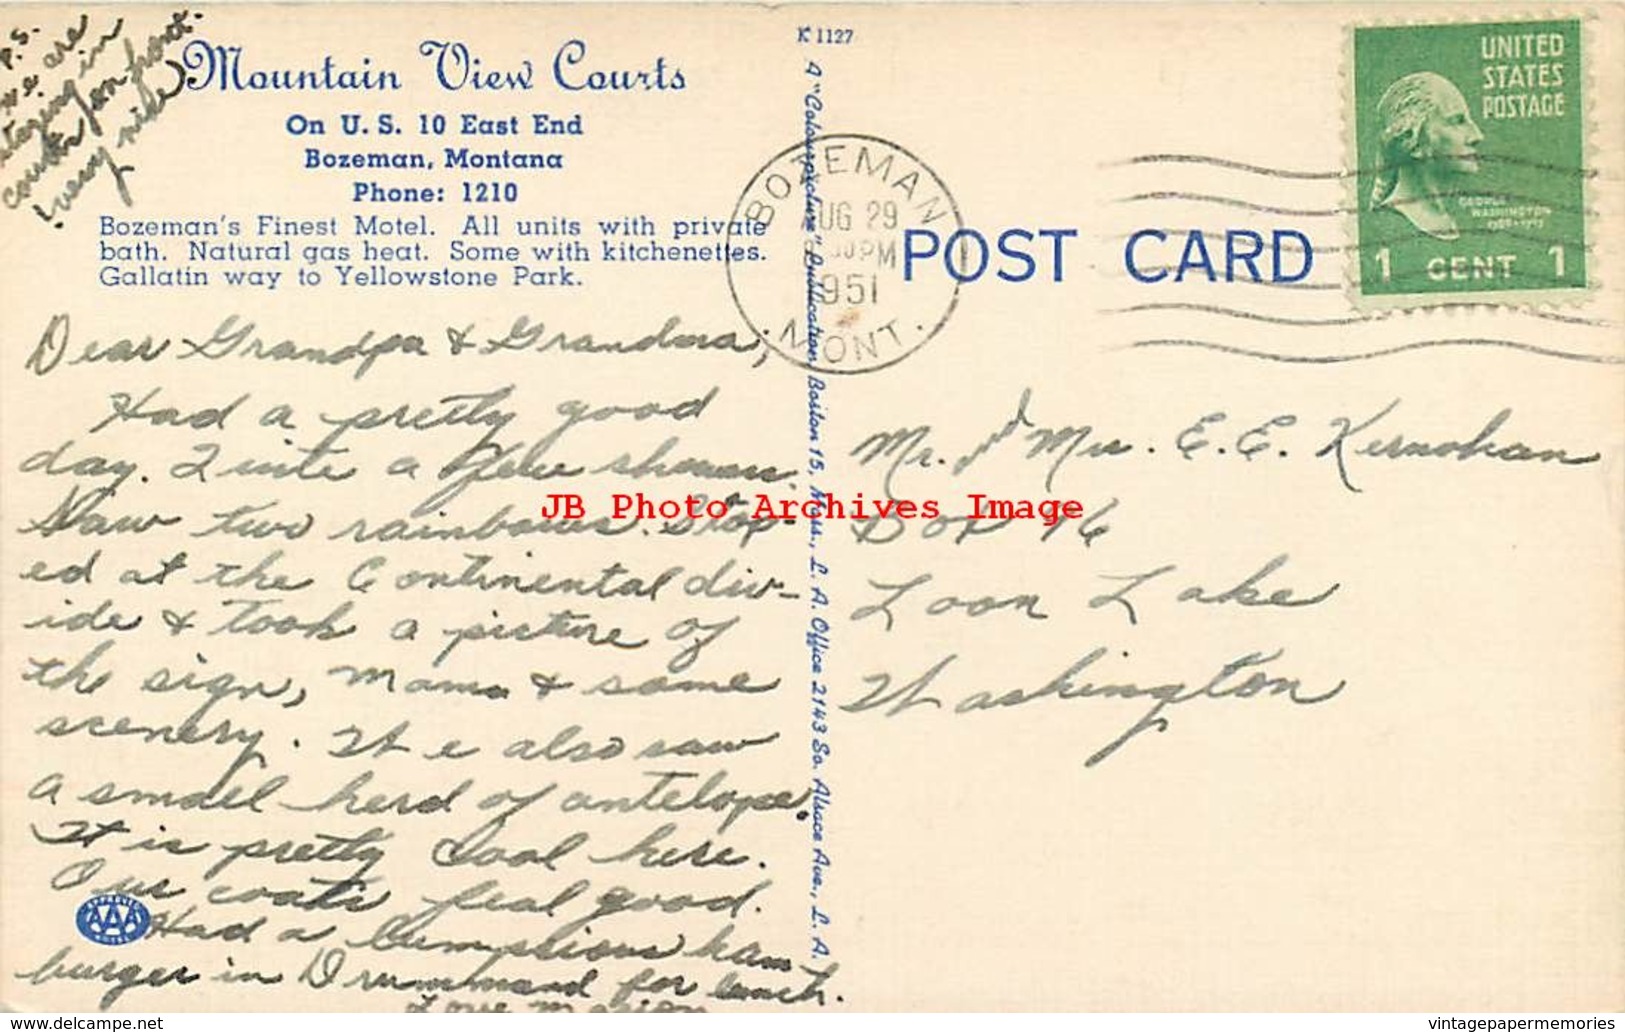 P.S.
we are
staying in
court on front.
very nice
Mountain View Courts
On U. S. 10 East End
Bozeman, Montana
Phone: 1210
Bozeman's Finest Motel. All units with private
bath. Natural gas heat. Some with kitchenettes.
Gallatin way to Yellowstone Park.
Dear Grandpa & Grandma,
Had a pretty good
day. Quite a few showers.
Saw two rainbows. Stop-
ed at the Continental div-
ide & took a picture of
the sign, Mama & some
scenery. We also saw
a small herd of antelope.
It is pretty cool here.
Our coats feel good.
Had a bumptious ham-
burger in Drummond for lunch.
Love Marion
APPROVED
AAA
MOTEL
K 1127
A "Colourpicture" Publication, Boston 15, Mass., L. A. Office 2143 So. Alsace Ave., L. A.
BOZEMAN
AUG 29
PM
1951
MONT.
POST CARD
UNITED
STATES
POSTAGE
GEORGE
WASHINGTON
1789-1797
1 CENT 1
Mr. & Mrs. E. E. Kernohan
Box 76
Loon Lake
Washington
JB Photo Archives Image
www.delcampe.net
vintagepapermemories